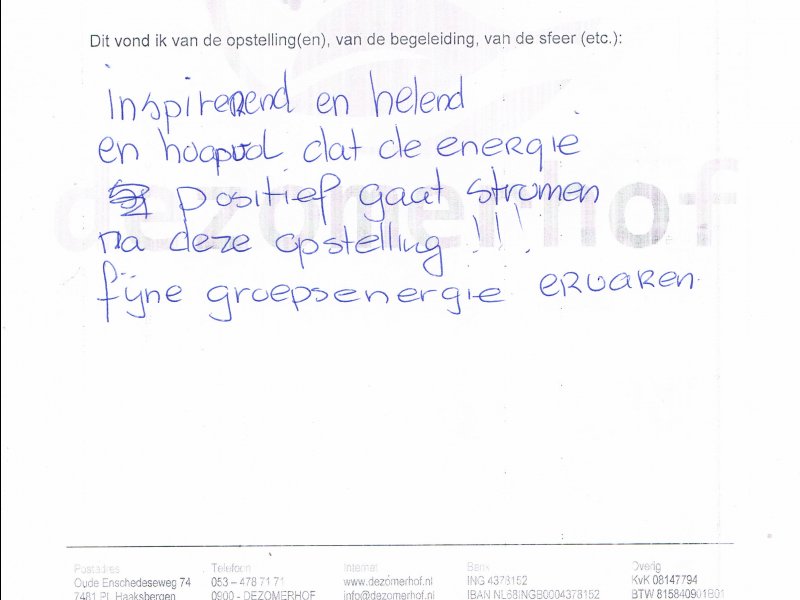 Dit vond ik van de opstelling(en), van de begeleiding, van de sfeer (etc.):
inspirerend en helend
en hoopvol dat de energie
positief gaat stromen
na deze opstelling !!!
fijne groepsenergie ervaren.
dezomerhof
Postadres Telefoon Internet Bank Overig
Oude Enschedeseweg 74 053 – 478 71 71 www.dezomerhof.nl ING 4378152 KvK 08147794
7481 PL Haaksbergen 0900 - DEZOMERHOF info@dezomerhof.nl IBAN NL68INGB0004378152 BTW 815840901B01